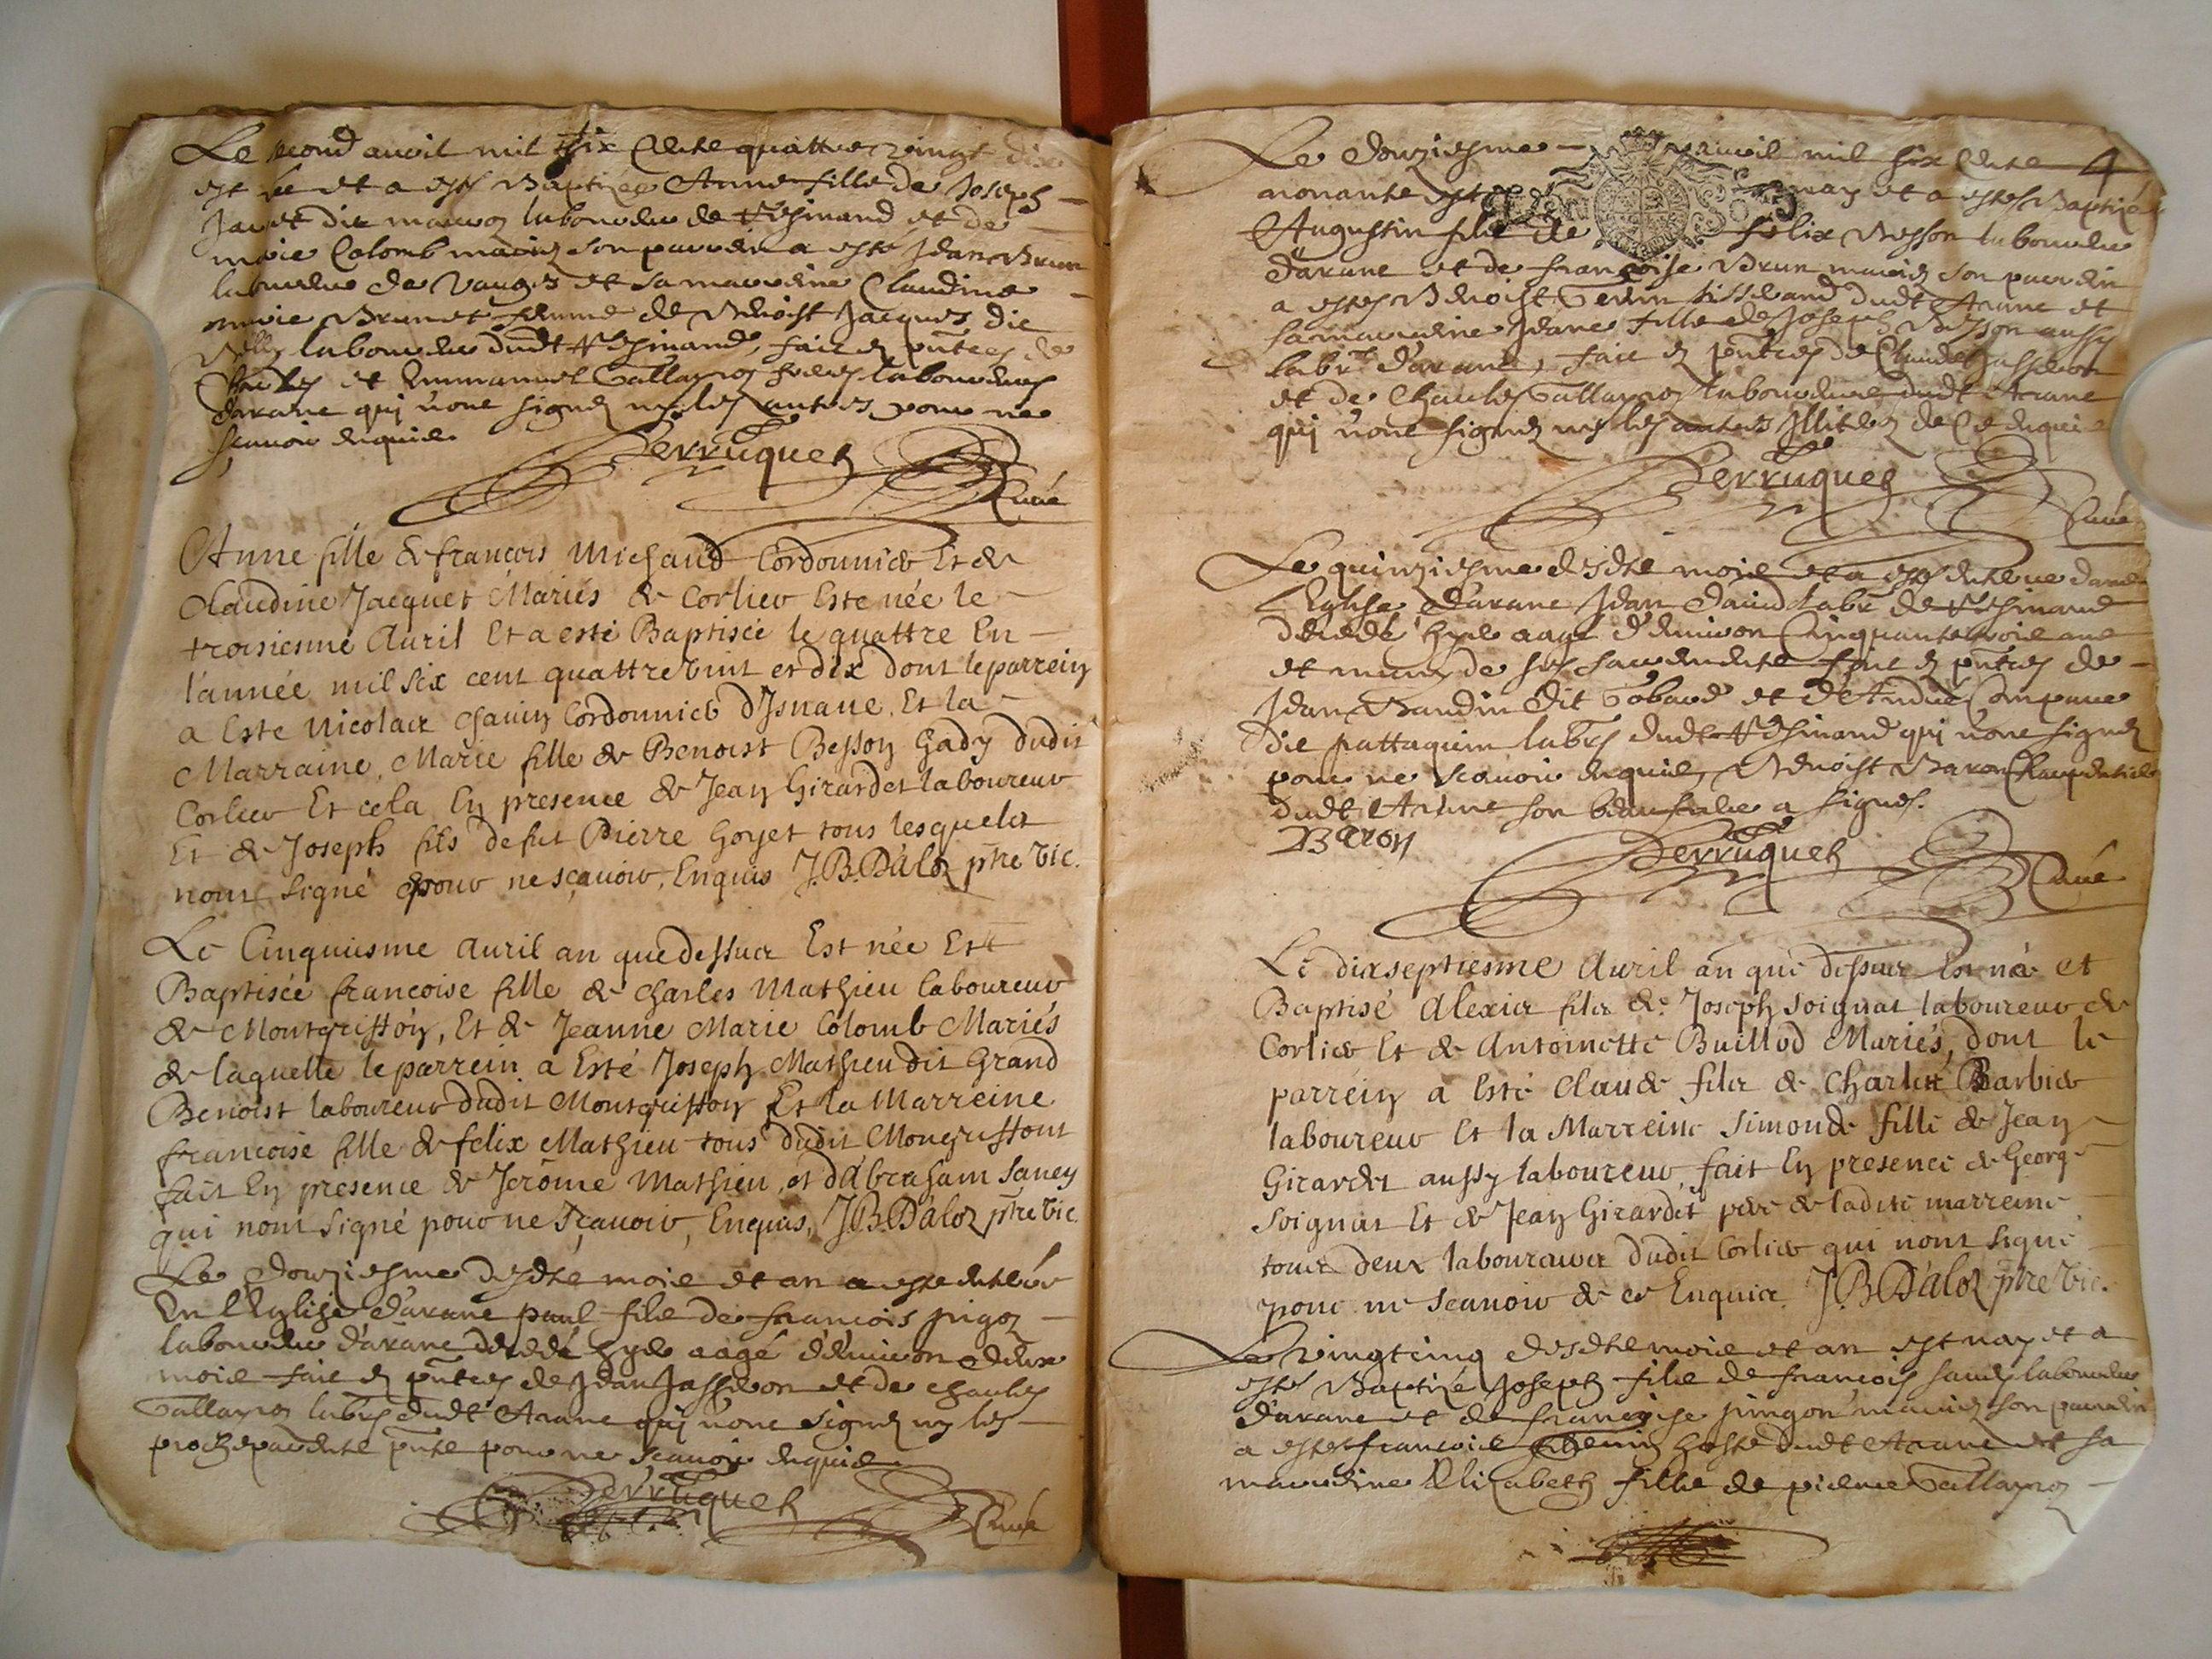 Le second avril mil six cents quattre vingt dix
est née et a esté Baptizée Anne fille de Joseph
laboureur de et de
marie Colomb mariez son parrein a esté Jean Brun
laboureur de et sa marreine Claudine
marie Brunet femme de Benoist Jacques dit
laboureur dudt fait en pntces de
Charles et Emmanuel Tallapioz freres laboureurs
darane qui n'ont signez ny les autres pour ne
scauoir enquis
Perruquet
Curé
Anne fille de françois Michaud Cordonnier Et de
Claudine Jacquet Mariés de Corlier Este née le
troisiesme Auril Et a esté Baptisée le quattre En
l'année mil six cent quattre vint et dix dont le parrein
a Este Nicolas Chauin Cordonnier d'Isnaue. Et la
Marraine, Marie fille de Benoist Besson Gady dudit
Corlier Et cela En presence de Jean Girardet laboureur
Et de Joseph fils de fut Pierre Goyet tous lesquels
nont signé pour ne sçauoir, Enquis J.B.D'aloz ptre vic.
Le Cinquiesme Auril an que dessus Est née Et
Baptisée francoise fille de Charles Mathieu laboureur
de Montgriffon, Et de Jeanne Marie Colomb Mariés
de laquelle le parrein a Esté Joseph Mathieu dit Grand
Benoist laboureur dudit Montgriffon Et la Marreine
francoise fille de felix Mathieu tous dudit Mongriffont
fait En presence de Jerôme Mathieu, et d'Abraham Saney
qui nont signé pour ne sçauoir, Enquis, J.B.D'aloz ptre vic.
Le douziesme desdts mois et an a esté enterré
En l'Eglise d'arane paul fils de francois pigoz
laboureur d'arane decedé hyer aagé d'enuiron deux
mois fait en pntces de Jean Jasseron et de Charles
Tallapioz labrs dudt Arane qui n'ont signez ny les
proches parents pnts pour ne scauoir enquis
Perruquet
Curé
Le douziesme auril mil six cents 4
nonante est nay et a esté Baptizé
Augustin fils de felix Besson laboureur
d'arane et de françoise Brun mariez son parrein
a esté Benoist tisserand dudt Arane et
sa marreine Jeane fille de Joseph Besson aussy
labr d'arane, fait en pntces de Claude Jasseron
et de Charles Tallapioz laboureurs dudt Arane
qui n'ont signez ny les autres Illiterez de ce enquis
Perruquet
Curé
Le quinziesme desdts mois et a esté enterré dans
l'Eglise d'arane Jean labr de
decedé hyer aagé d'enuiron Cinquante trois ans
et muny de ses sacrements fait en pntces de
Jean Baudin dit et d'André Compane
dit pattaquin labrs dudt qui n'ont signez
pour ne scauoir enquis, Benoist Baron Charpentier
dudt Arane son beaufrere a signé.
Baron
Perruquet
Curé
Le dixseptiesme Auril an que dessus Est né et
Baptisé Alexis fils de Joseph Soignat laboureur de
Corlier Et de Antoinette Buillod Mariés, dont le
parrein a Esté Claude fils de Charles Barbier
laboureur Et la Marreine Simonde fille de Jean
Girardet aussy laboureur, fait En presence de George
Soignat Et de Jean Girardet pere de ladite marreine
tous deux laboureurs dudit Corlier qui nont signé
pour ne scauoir de ce Enquis. J.B.D'aloz ptre vic.
Le vingt cinq desdts mois et an est nay et a
esté Baptizé Joseph fils de francois laboureur
d'arane et de françoise pingon mariez son parrein
a esté francois hoste dudt Arane et sa
marreine Elizabeth fille de pierre Tallapioz